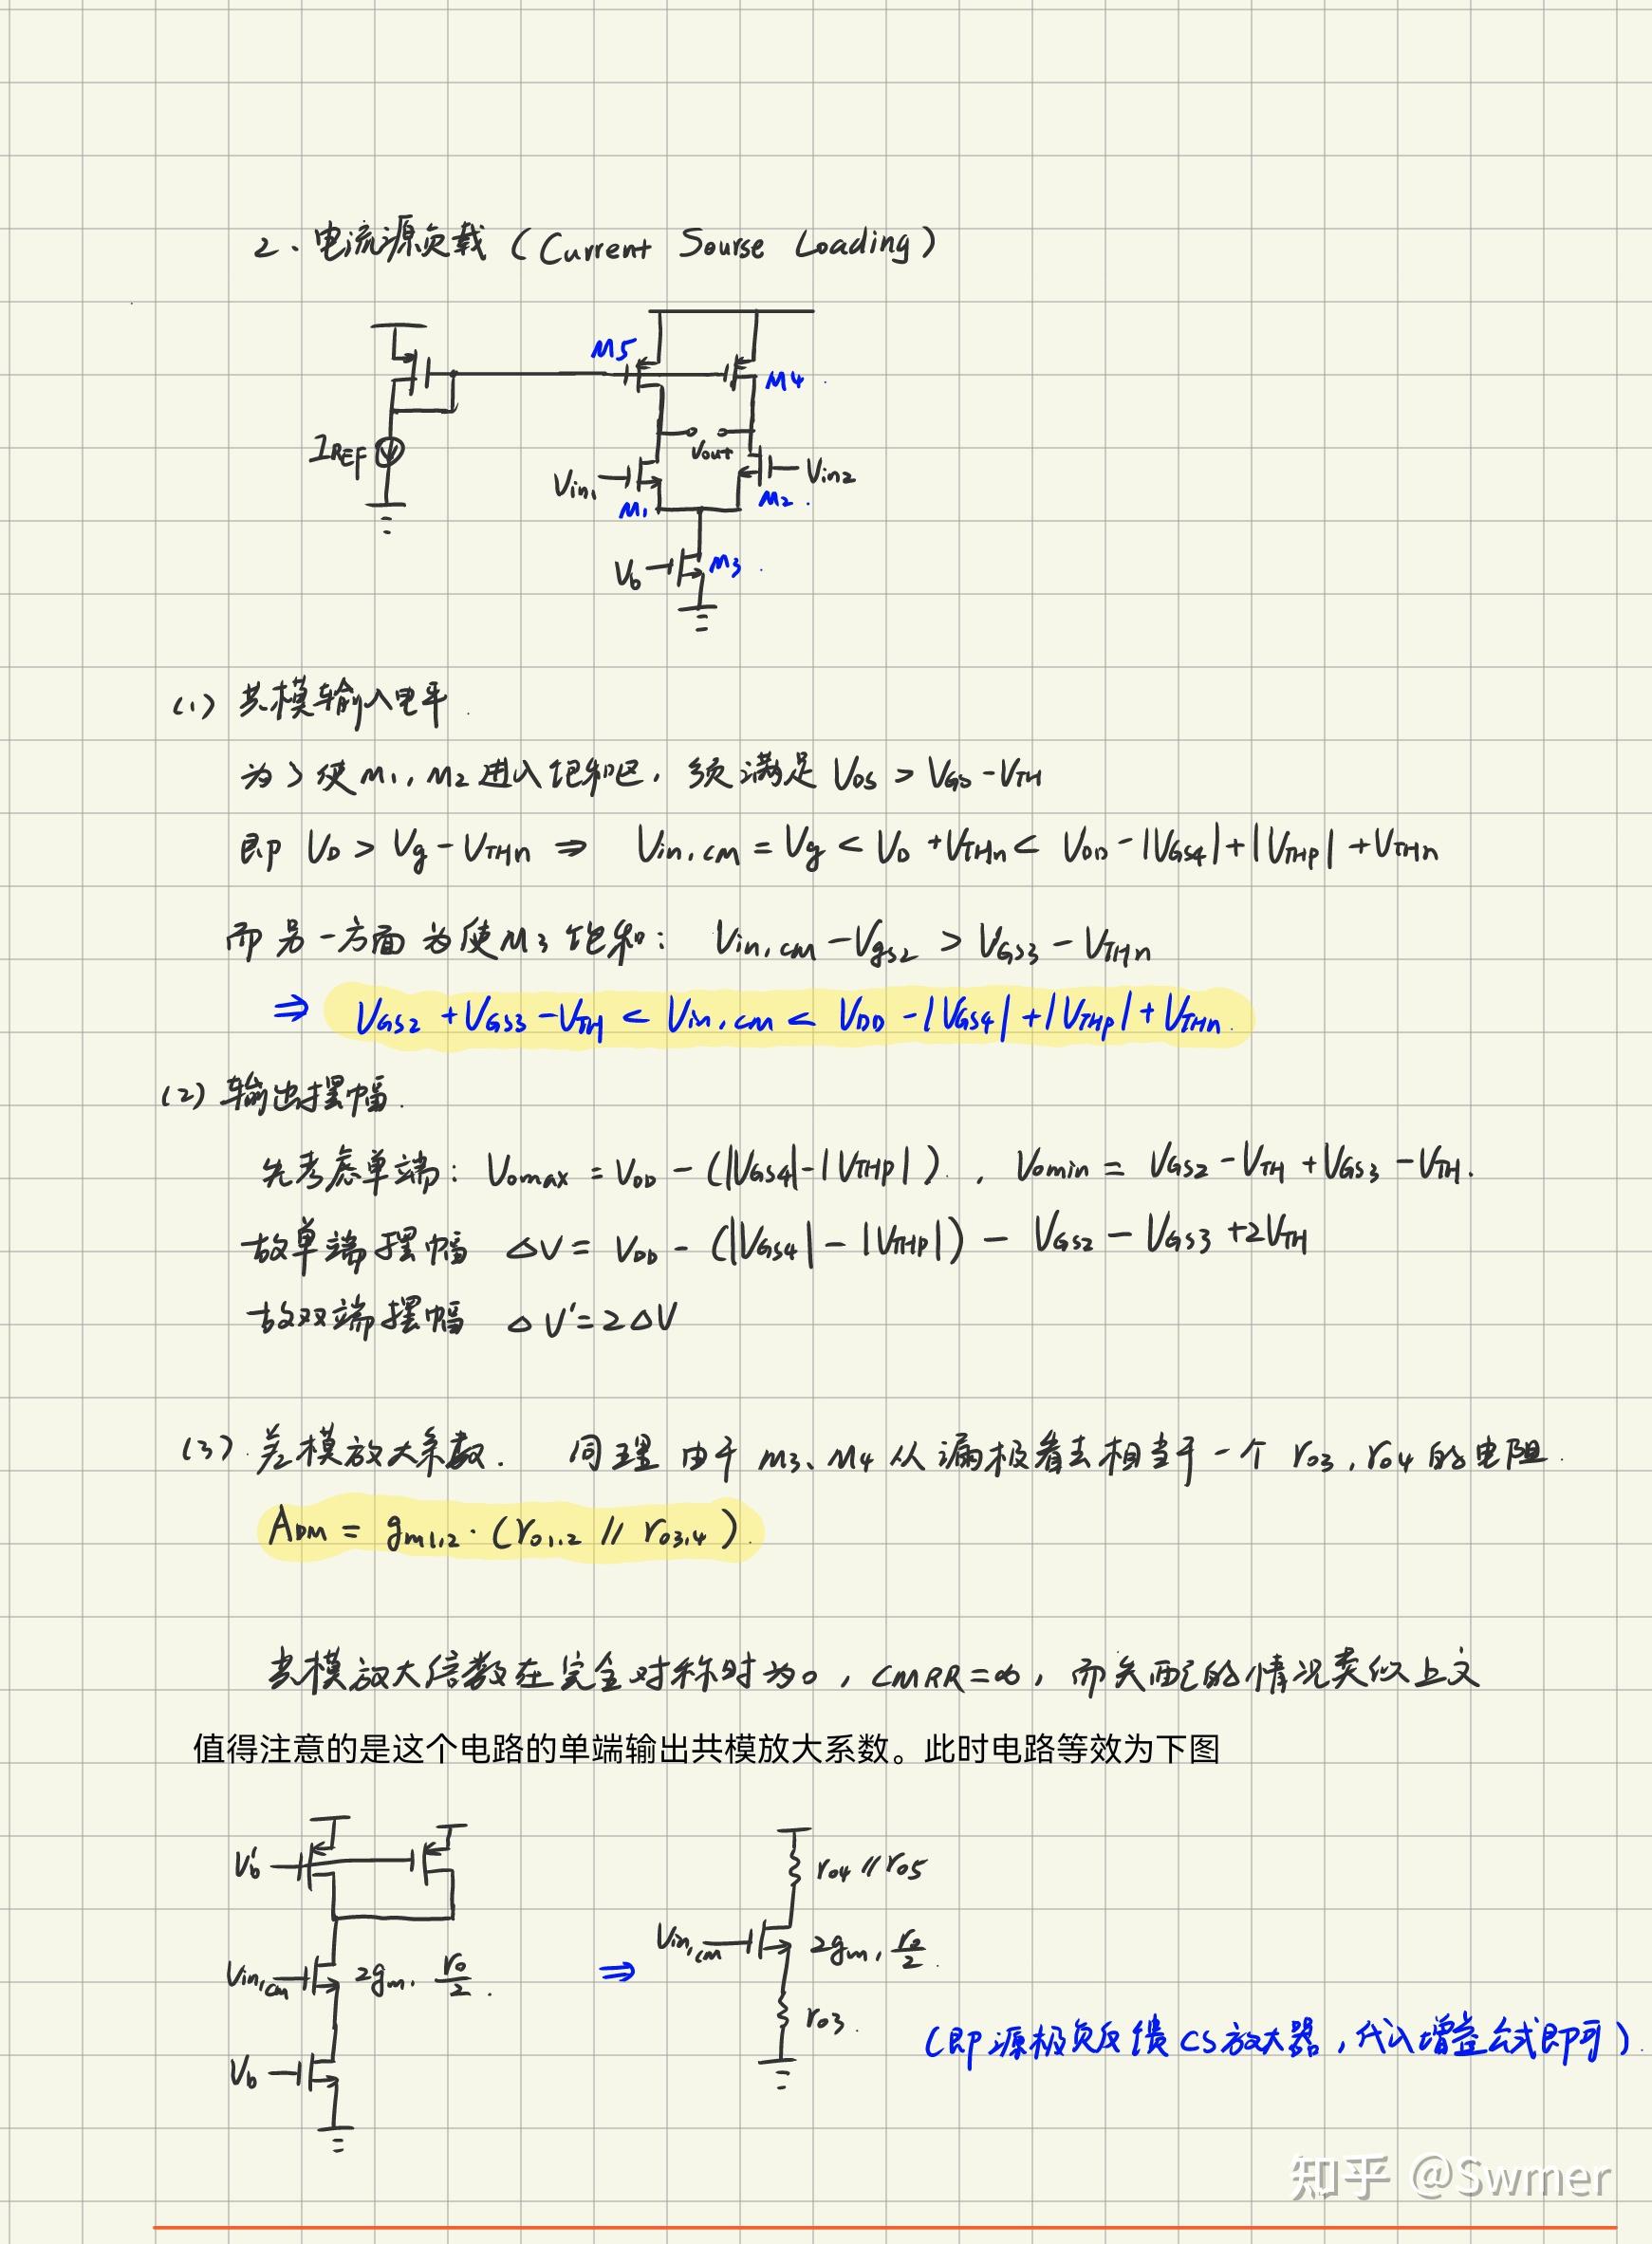 2、电流源负载 (Current Sourse Loading)
M5
M4
IREF
Vout
Vin1
Vin2
M1
M2
Vb
M3
(1) 共模输入电平
为了使M1,M2进入饱和区,须满足 VDS > VGS - VTH
即 VD > Vg - VTHn ⇒ Vin,cm = Vg < VD + VTHn < VDD - |VGS4| + |VTHP| + VTHn
而另一方面为使M3饱和: Vin,cm - Vgs2 > VGS3 - VTHn
⇒ VGS2 + VGS3 - VTH < Vin,cm < VDD - |VGS4| + |VTHP| + VTHn
(2) 输出摆幅
先考虑单端: Vomax = VDD - (|VGS4| - |VTHP|), Vomin = VGS2 - VTH + VGS3 - VTH.
故单端摆幅 ΔV = VDD - (|VGS4| - |VTHP|) - VGS2 - VGS3 + 2VTH
故双端摆幅 ΔV' = 2ΔV
(3) 差模放大系数. 同理由于M3、M4从漏极看去相当于一个 ro3, ro4 的电阻
ADM = gm1,2 · (ro1,2 // ro3,4)
共模放大倍数在完全对称时为0, CMRR = ∞, 而失配的情况类似上文
值得注意的是这个电路的单端输出共模放大系数。此时电路等效为下图
Vb'
ro4 // ro5
Vin,cm 2gm, ro/2
⇒
Vin,cm 2gm, ro/2
ro3
Vb
(即源极负反馈CS放大器,代入增益公式即可)
知乎 @Swmer